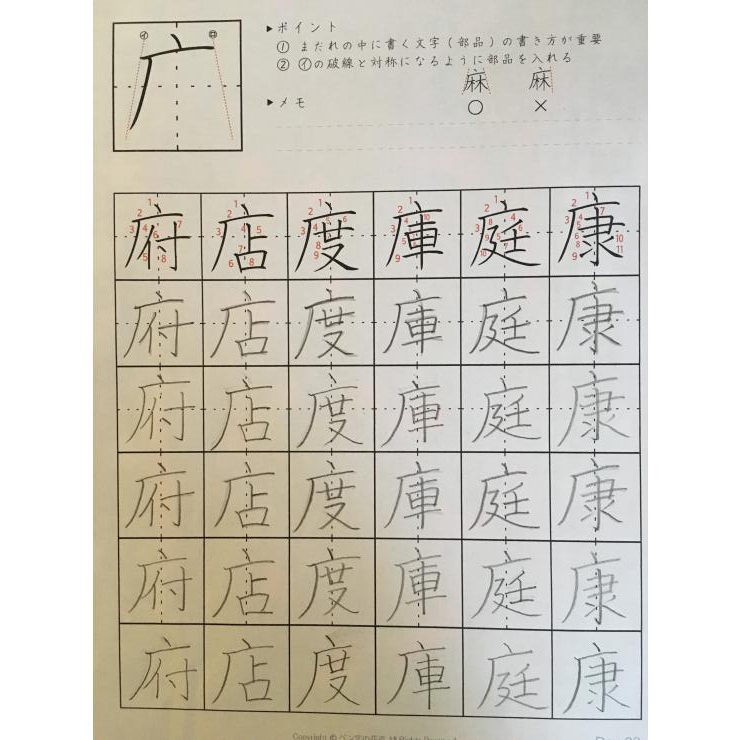 イ ロ
▶ポイント
① まだれの中に書く文字(部品)の書き方が重要
② ㋑の破線と対称になるように部品を入れる
广
麻 麻
○ ×
▶メモ
府 店 度 庫 庭 康
府 店 度 庫 庭 康
府 店 度 庫 庭 康
府 店 度 庫 庭 康
府 店 度 庫 庭 康
府 店 度 庫 庭 康
Copyright © ペン字の花